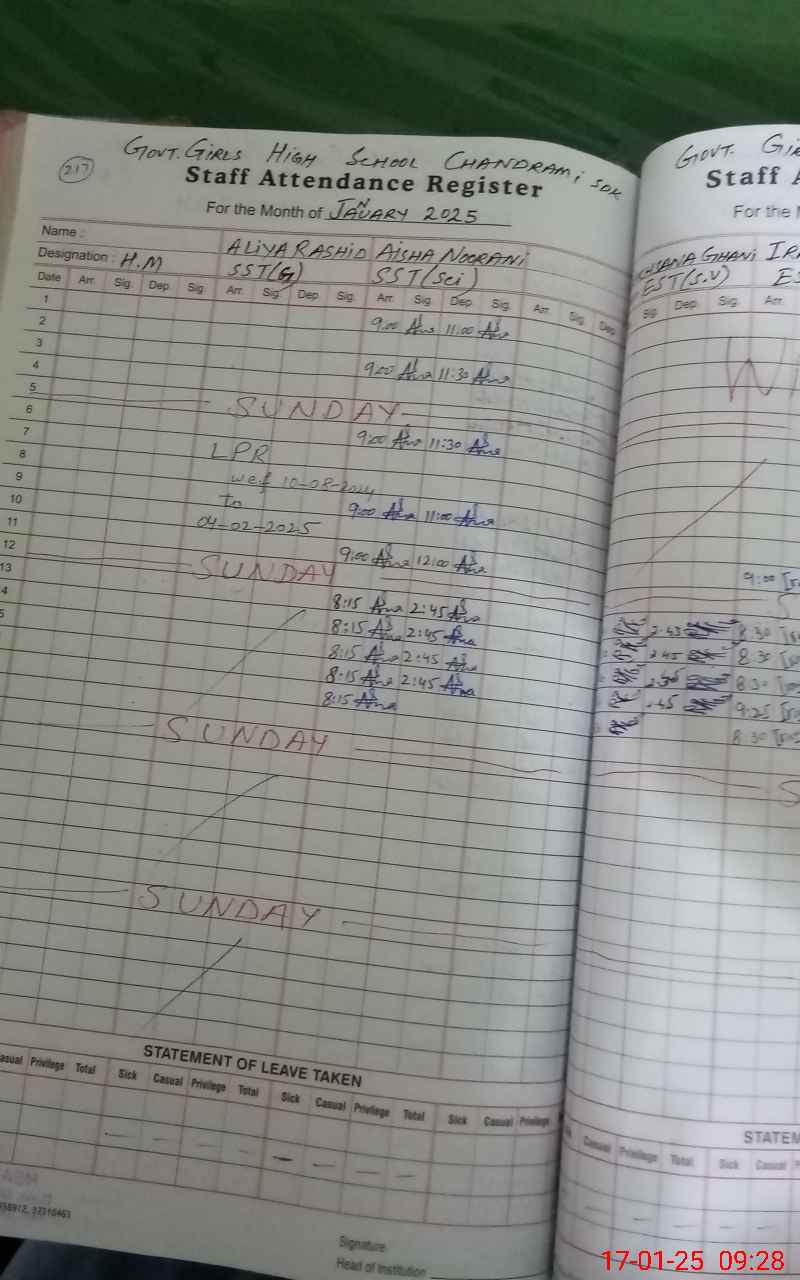 GOVT. GIRLS HIGH SCHOOL CHANDRAMI SDK
217
Staff Attendance Register
For the Month of JANUARY 2025
Name : ALIYA RASHID AISHA NOORANI
Designation : H.M SST(G) SST(Sci)
Date Arr. Sig. Dep. Sig. Arr. Sig. Dep. Sig. Arr. Sig. Dep. Sig. Arr. Sig. Dep.
1
2 9:00 11:00
3
4 9:00 11:30
5 SUNDAY
6
7 9:00 11:30
8 LPR
9 wef 10-08-2024
10 to 9:00 11:00
11 04-02-2025
12 SUNDAY 9:00 12:00
13
8:15 2:45
8:15 2:45
8:15 2:45
8:15 2:45
8:15
SUNDAY
SUNDAY
STATEMENT OF LEAVE TAKEN
Casual Privilege Total Sick Casual Privilege Total Sick Casual Privilege Total Sick Casual Privilege
Signature
Head of Institution
GOVT. GIR
Staff A
For the M
GHANI IR
EST(S.V) ES
Sig. Dep. Sig. Arr.
9:00
2.45 8:30
2.45 8:30
8:30
2.45 9:25
8:30
S
STATEM
Casual Privilege Total Sick Casual
17-01-25 09:28